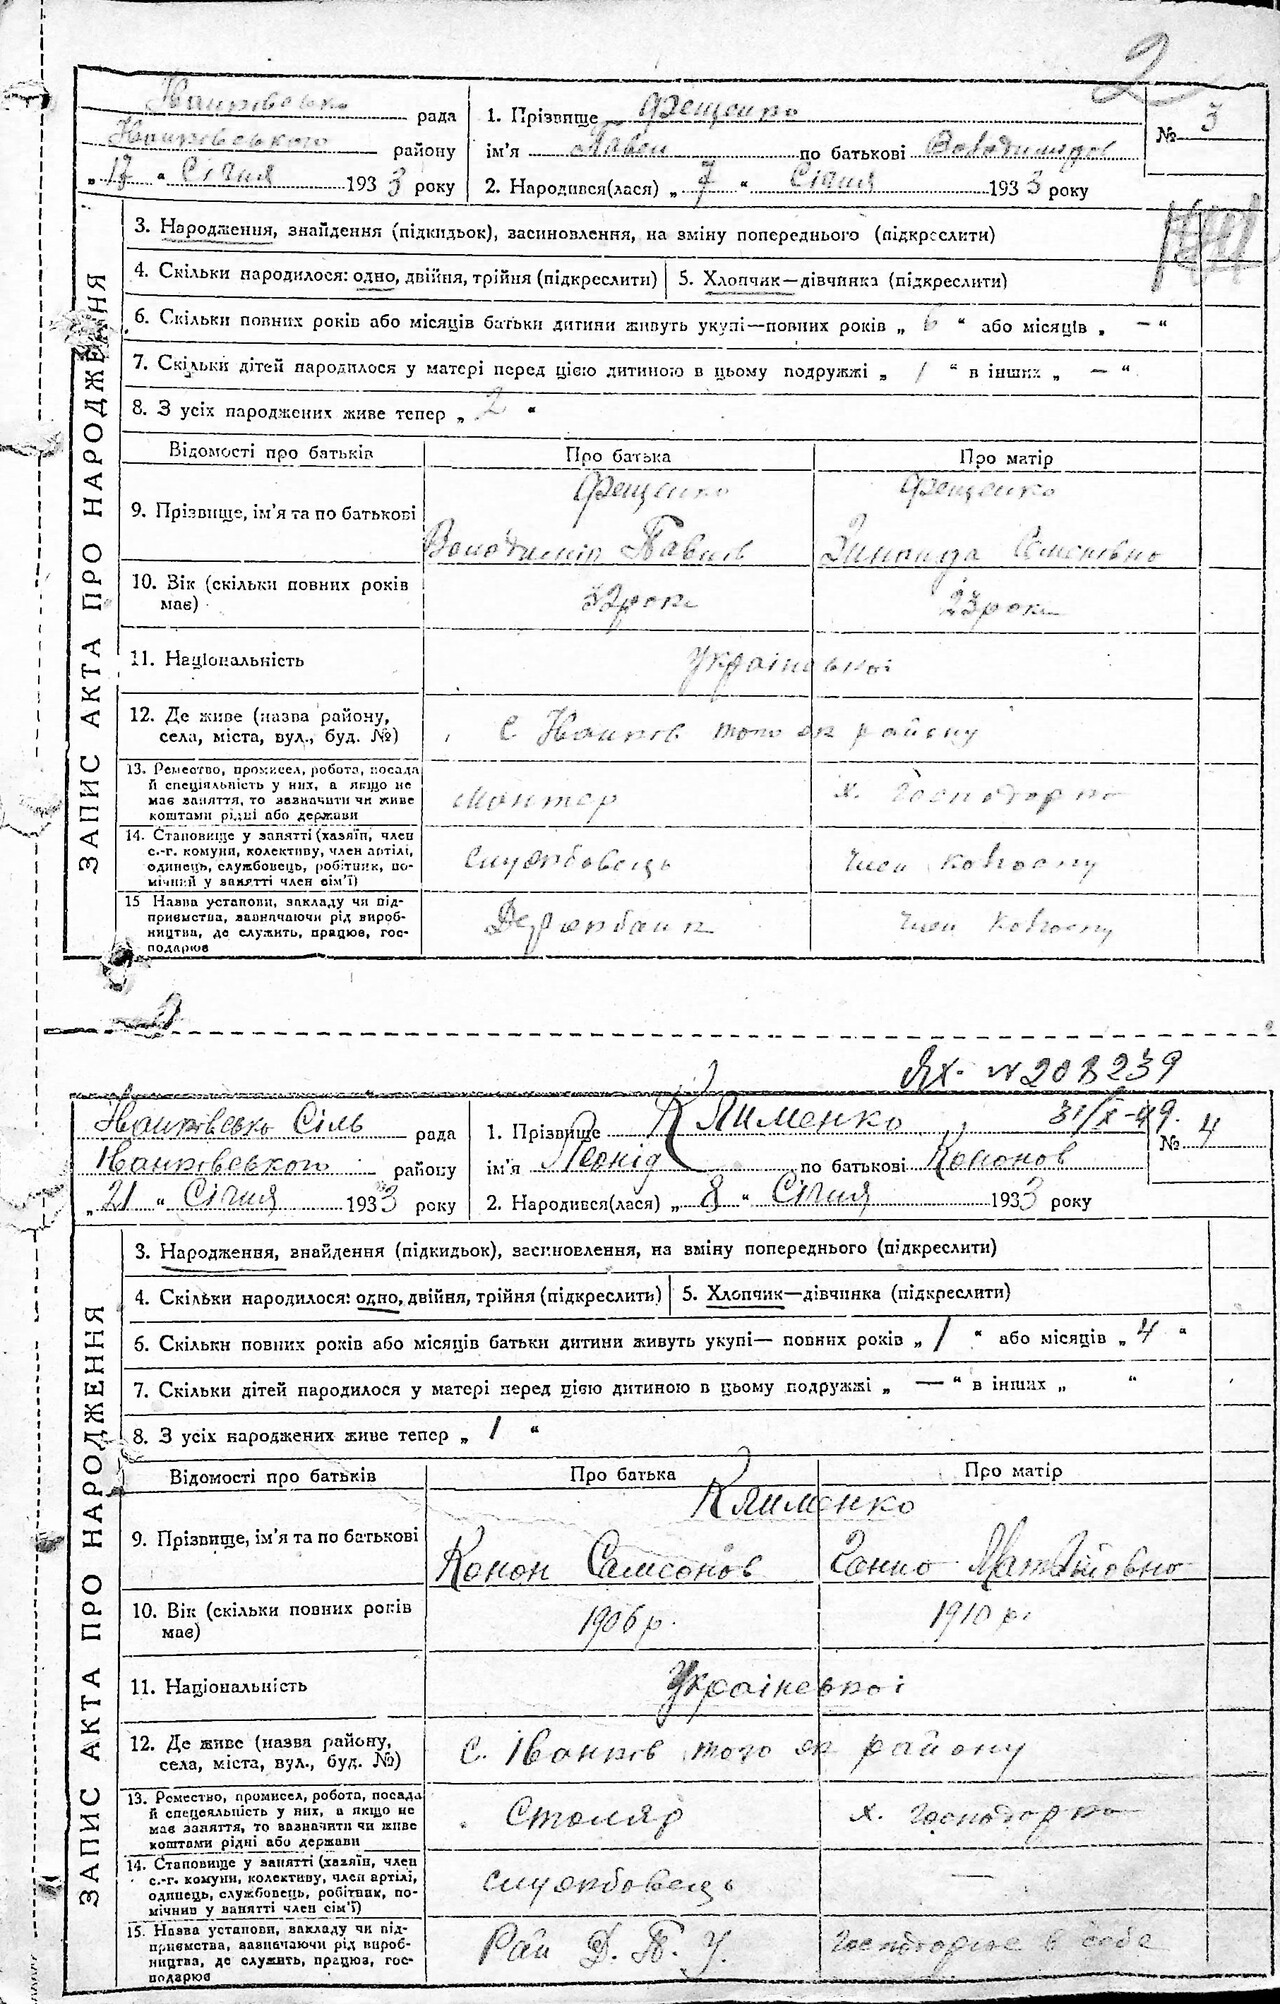 2
Іванківсько рада
Іванківського району
„ 17 “ Січня 1933 року
1. Прізвище Фещенко
ім'я Павел по батькові Володимиров
2. Народився(лася) „ 7 “ Січня 1933 року
№ 3
ЗАПИС АКТА ПРО НАРОДЖЕННЯ
3. Народження, знайдення (підкидьок), засиновлення, на зміну попереднього (підкреслити)
4. Скільки народилося: одно, двійня, трійня (підкреслити) 5. Хлопчик—дівчинка (підкреслити)
6. Скільки повних років або місяців батьки дитини живуть укупі—повних років „ 6 “ або місяців „ — “
7. Скільки дітей народилося у матері перед цією дитиною в цьому подружжі „ 1 “ в інших „ — “
8. З усіх народжених живе тепер „ 2 “
Відомості про батьків Про батька Про матір
9. Прізвище, ім'я та по батькові
Фещенко Фещенко
Володимір Павлів Зинаида Семенівно
10. Вік (скільки повних років
має)
32 рок. 23 рок.
11. Національність Української
12. Де живе (назва району,
села, міста, вул., буд. №)
с. Іванків того ж району
13. Ремество, промисел, робота, посада
й спеціяльність у них, а якщо не
має заняття, то зазначити чи живе
коштами рідні або держави
монтер х. господарка
14. Становище у занятті (хазяїн, член
с.-г. комуни, колективу, член артілі,
одинець, службовець, робітник, по-
мічний у занятті член сім'ї)
службовець член колгоспу
15 Назва установи, закладу чи під-
приємства, зазначаючи рід вироб-
ництва, де служить, працює, гос-
подарює
Держбанк член колгоспу
ЯХ. № 208239
31/X-49.
Іванківсько Сіль рада
Іванківського району
„ 21 “ Січня 1933 року
1. Прізвище Клименко
ім'я Леонід по батькові Кононов
2. Народився(лася) „ 8 “ Січня 1933 року
№ 4
ЗАПИС АКТА ПРО НАРОДЖЕННЯ
3. Народження, знайдення (підкидьок), засиновлення, на зміну попереднього (підкреслити)
4. Скільки народилося: одно, двійня, трійня (підкреслить) 5. Хлопчик—дівчинка (підкреслити)
6. Скільки повних років або місяців батьки дитини живуть укупі— повних років „ 1 “ або місяців „ 4 “
7. Скільки дітей народилося у матері перед цією дитиною в цьому подружжі „ — “ в інших „ “
8. З усіх народжених живе тепер „ 1 “
Відомості про батьків Про батька Про матір
9. Прізвище, ім'я та по батькові
Клименко
Конон Самсонов Ганно Матвійовно
10. Вік (скільки повних років
має)
1906 р. 1910 р.
11. Національність Української
12. Де живе (назва району,
села, міста, вул., буд. №)
с. Іванків того ж району
13. Ремество, промисел, робота, посада
й спецеяльність у них, а якщо не
має заняття, то зазначити чи живе
коштами рідні або держави
Столяр х. господарка
14. Становище у занятті (хазяїн, член
с.-г. комуни, колективу, член артілі,
одинець, службовець, робітник, по-
мічник у занятті член сім'ї)
службовець —
15. Назва установи, закладу чи під-
приємства, зазначаючи рід вироб-
ництва, де служить, працює, гос-
подарює
Рай Д. П. У. Господарює в себе